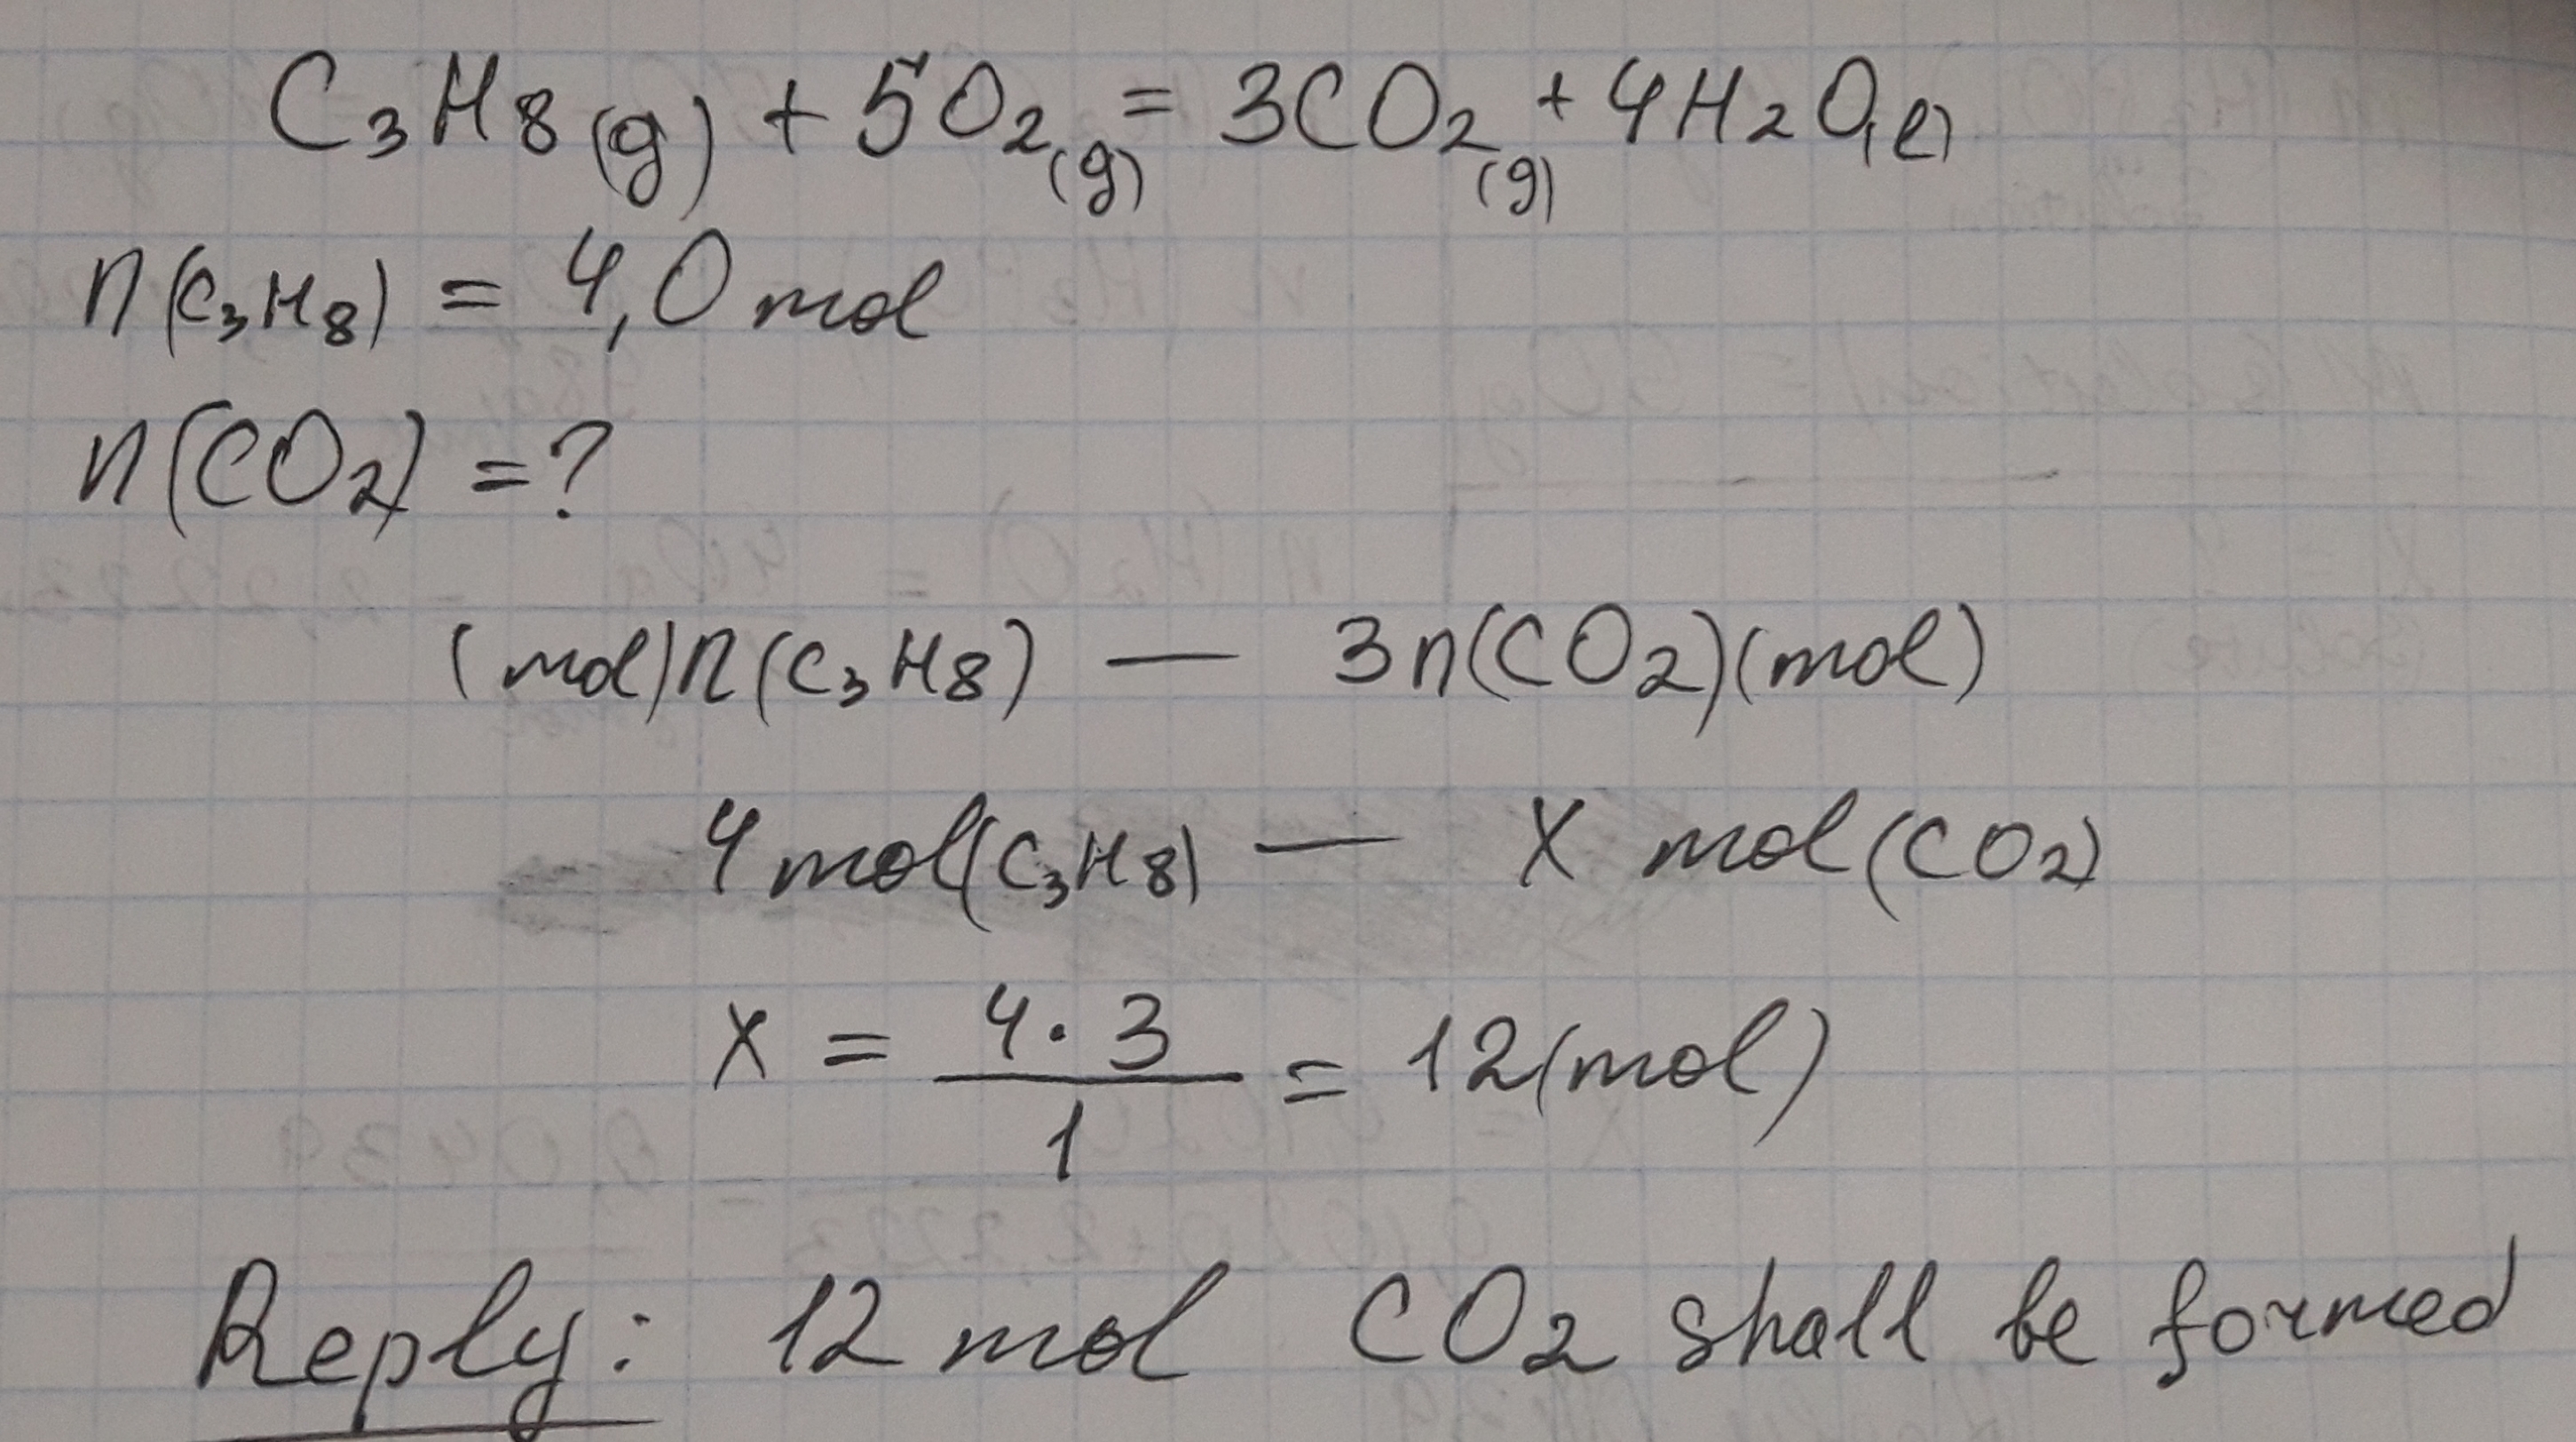 C3H8(g) + 5O2(g) = 3CO2(g) + 4H2O(l)
n(C3H8) = 4,0 mol
n(CO2) = ?
(mol)n(C3H8) — 3n(CO2)(mol)
4 mol(C3H8) — X mol(CO2)
X = 4·3/1 = 12(mol)
Reply: 12 mol CO2 shall be formed